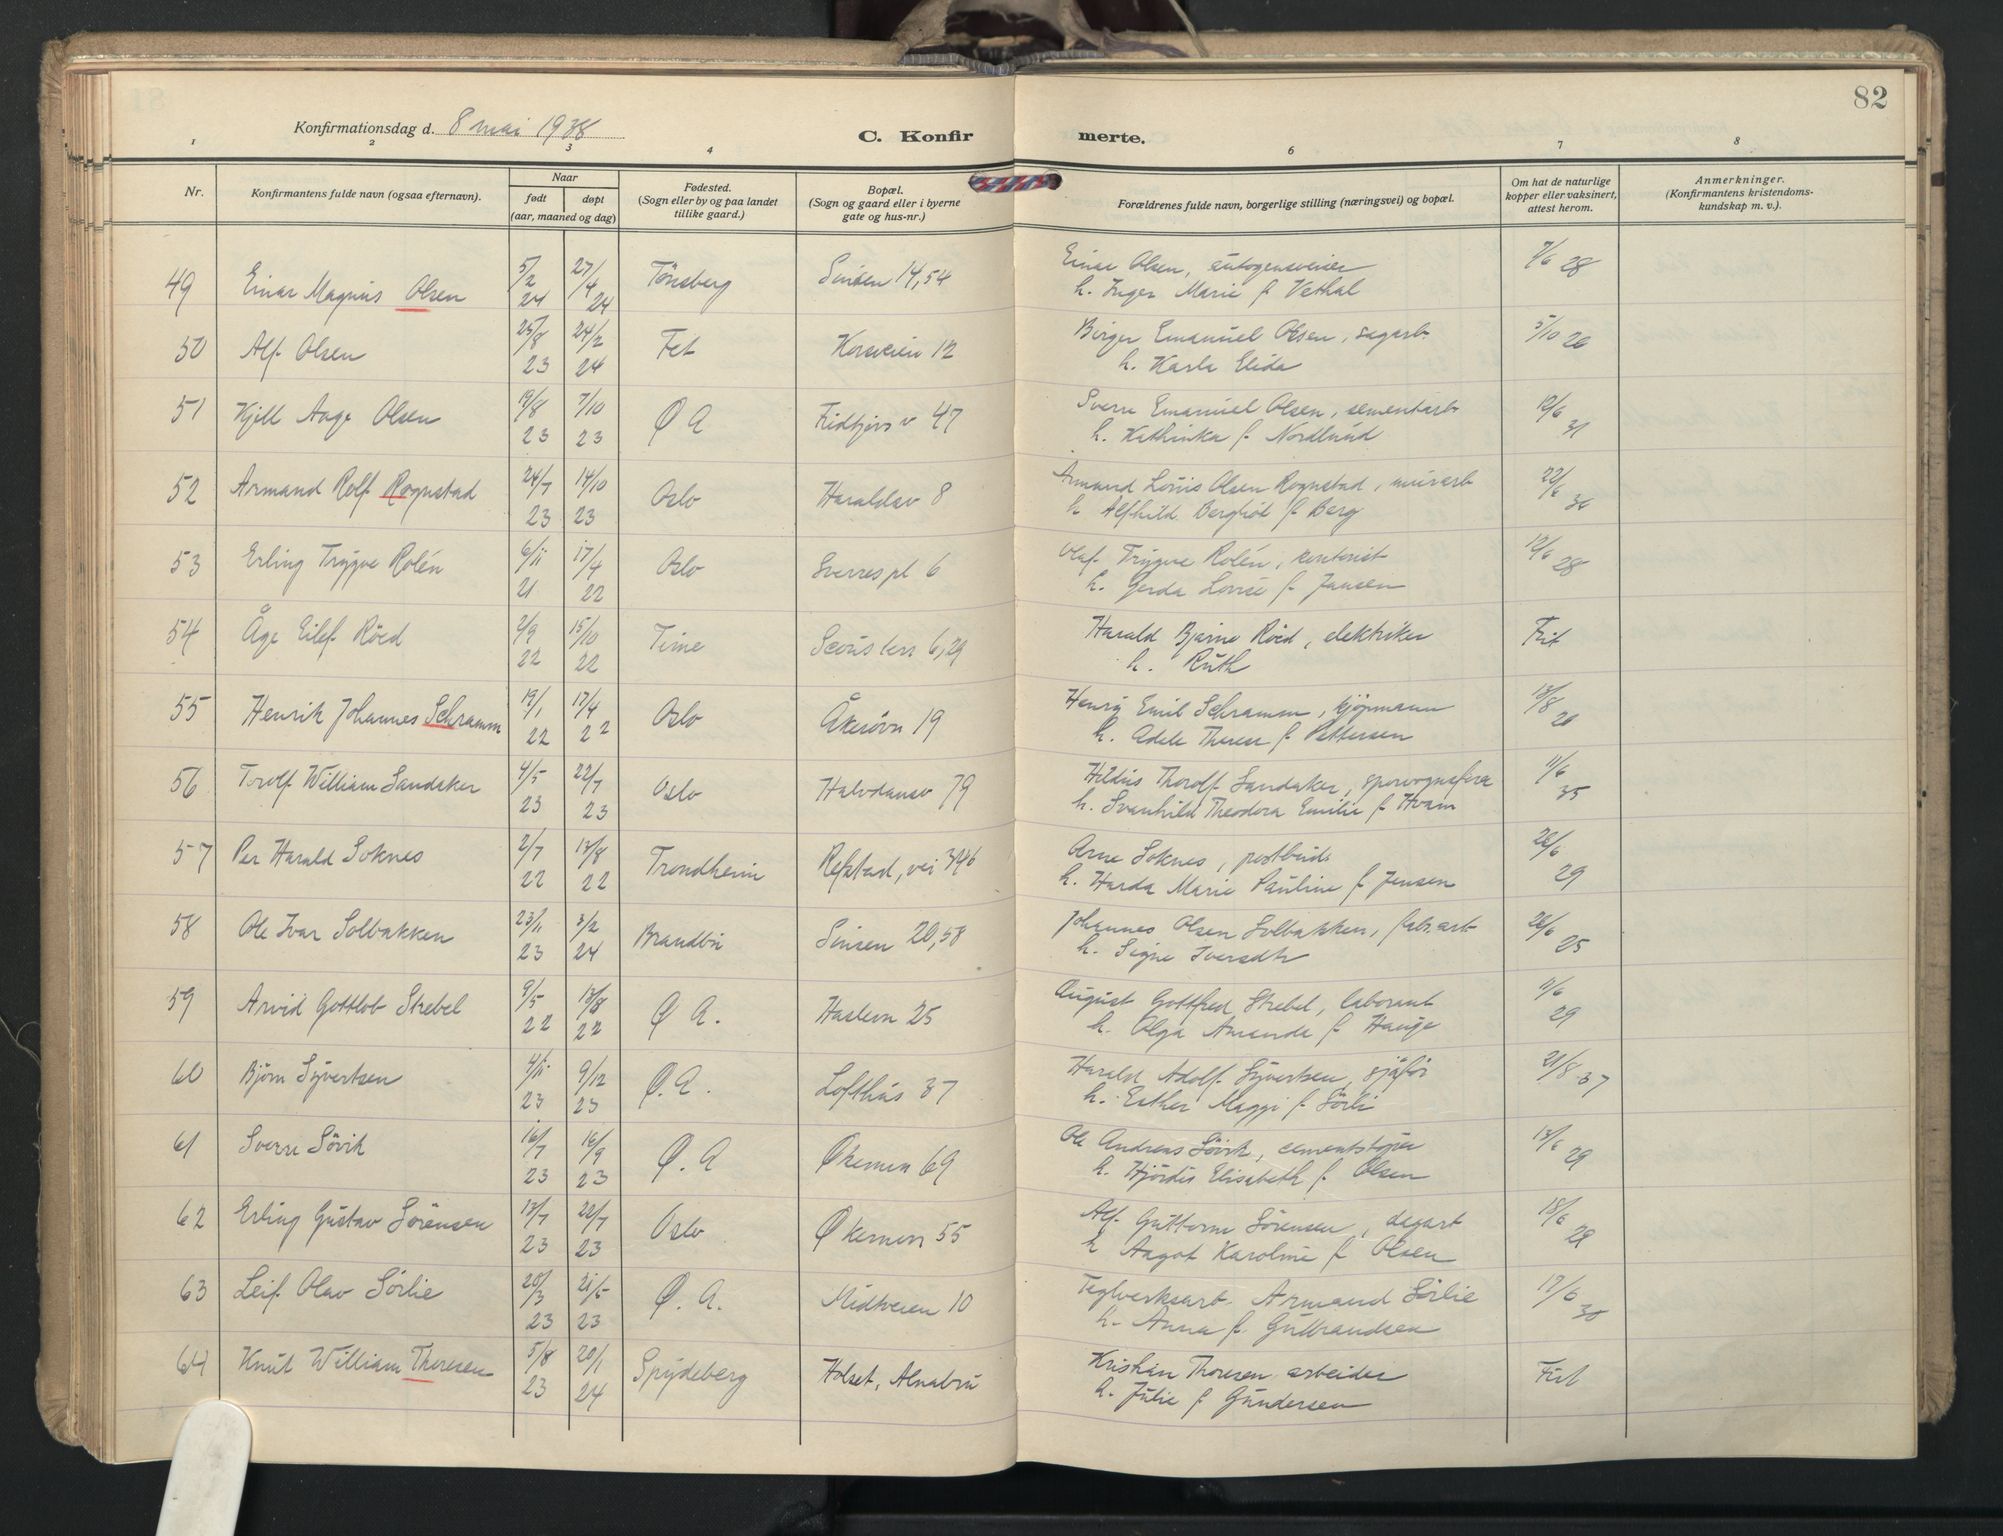 82
Konfirmationsdag d. 8 mai 1938
C. Konfirmerte.
1 2 3 4 6 7 8
Nr.
Konfirmantens fulde navn (ogsaa efternavn).
Naar
født døpt
(aar, maaned og dag)
Fødested.
(Sogn eller by og paa landet
tillike gaard.)
Bopæl.
(Sogn og gaard eller i byerne
gate og hus-nr.)
Forældrenes fulde navn, borgerlige stilling (næringsvei) og bopæl.
Om hat de naturlige
kopper eller vaksinert,
attest herom.
Anmerkninger.
(Konfirmantens kristendoms-
kundskap m. v.).
49 Einar Magnus Olsen 5/2 24 27/4 24 Tönsberg Sinsen 14,54 Einar Olsen, autogensveiser 7/6 28
h. Inger Marie f. Vethal
50 Alf Olsen 25/8 23 24/2 24 Fet Korsveien 12 Birger Emanuel Olsen, sagarb. 5/10 26
h. Karla Elida
51 Kjell Aage Olsen 19/8 23 7/10 23 Ø A Fridtjovs v 47 Sverre Emanuel Olsen, sementarb. 12/6 31
h. Kathinka f. Nordlund
52 Armand Rolf Rognstad 24/7 23 14/10 23 Oslo Haraldsv 8 Armand Louis Olsen Rognstad, murarb 22/6
h. Alfhild Bergliot f. Berg
53 Erling Trygve Rolén 6/11 21 17/4 22 Oslo Sverres pl 6 Olaf Trygve Rolén, kontorist 12/6 28
h. Gerda Lovise f. Jansen
54 Åge Eilef Röed 2/9 22 15/10 22 Time 6,29 Harald Bjarne Röed, elektriker Frit
h. Ruth
55 Henrik Johannes Schramm 19/1 22 17/4 22 Oslo Åkersvn 19 Henry Emil Schramm, kjøpmann 13/8 26
h. Adele Therese f. Pettersen
56 Torolf William Sandaker 4/5 23 22/7 23 Oslo Halvdansv 79 Hildus Thorolf Sandaker, sporvognsfører 11/6 35
h. Svanhild Theodora Emilie f. Hvam
57 Per Harald Soknes 2/7 22 13/8 22 Trondheim Refstad, vei 346 Arne Soknes, postbud 26/6 29
h. Harda Marie Pauline f. Jensen
58 Ole Ivar Solbakken 23/11 23 3/2 24 Brandbu Sinsen 20,58 Johannes Olsen Solbakken, fabr.arb 26/6 25
h. Signe Iversdtr
59 Arvid Gottlob Strebel 9/5 22 13/8 22 Ø A. Haslevn 25 August Gottfred Strebel, laborant 11/6 29
h. Olga Amanda f. Hauge
60 Bjørn Syvertsen 4/11 23 9/12 23 Ø. A. Lofthus 37 Harald Adolf Syvertsen, sjåför 21/8 37
h. Esther Maggi f. Sörli
61 Sverre Sövik 16/7 23 16/9 23 Ø. A Økernvn 69 Ole Andreas Sövik, cementstøper 13/6 29
h. Hjördis Elisabeth f. Olsen
62 Erling Gustav Sörensen 13/7 23 22/7 23 Oslo Økernvn 55 Alf Guttorm Sörensen, 18/6 29
h. Aagot Karoline f. Olsen
63 Leif Olav Sörlie 20/3 23 21/5 23 Ø. A. Midtveien 10 Teglverksarb. Armand Sörlie 17/6
h. Anna f. Gulbrandsen
64 Knut William Thoresen 5/8 23 20/1 24 Spydeberg Holset, Alnabru Kristian Thoresen arbeider Frit
h. Julie f. Gundersen